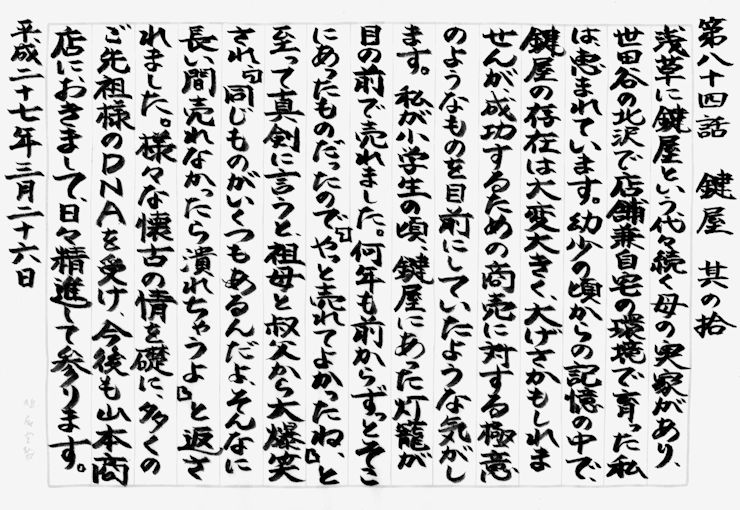 第八十四話　鍵屋　其の拾
浅草に鍵屋という代々続く母の実家があり、
世田谷の北沢で店舗兼自宅の環境で育った私
は、恵まれています。幼少の頃からの記憶の中で、
鍵屋の存在は大変大きく、大げさかもしれま
せんが、成功するための商売に対する極意
のようなものを目前にしていたような気がし
ます。私が小学生の頃、鍵屋にあった灯籠が
目の前で売れました。何年も前からずっとそこ
にあったものだったので、「やっと売れてよかったね、」と
至って真剣に言うと、祖母と叔父から大爆笑
され、「同じものがいくつもあるんだよ、そんなに
長い間売れなかったら潰れちゃうよ」と返さ
れました。様々な懐古の情を礎に、多くの
ご先祖様のDNAを受け、今後も山本商
店におきまして、日々精進して参ります。
平成二十七年三月二十六日